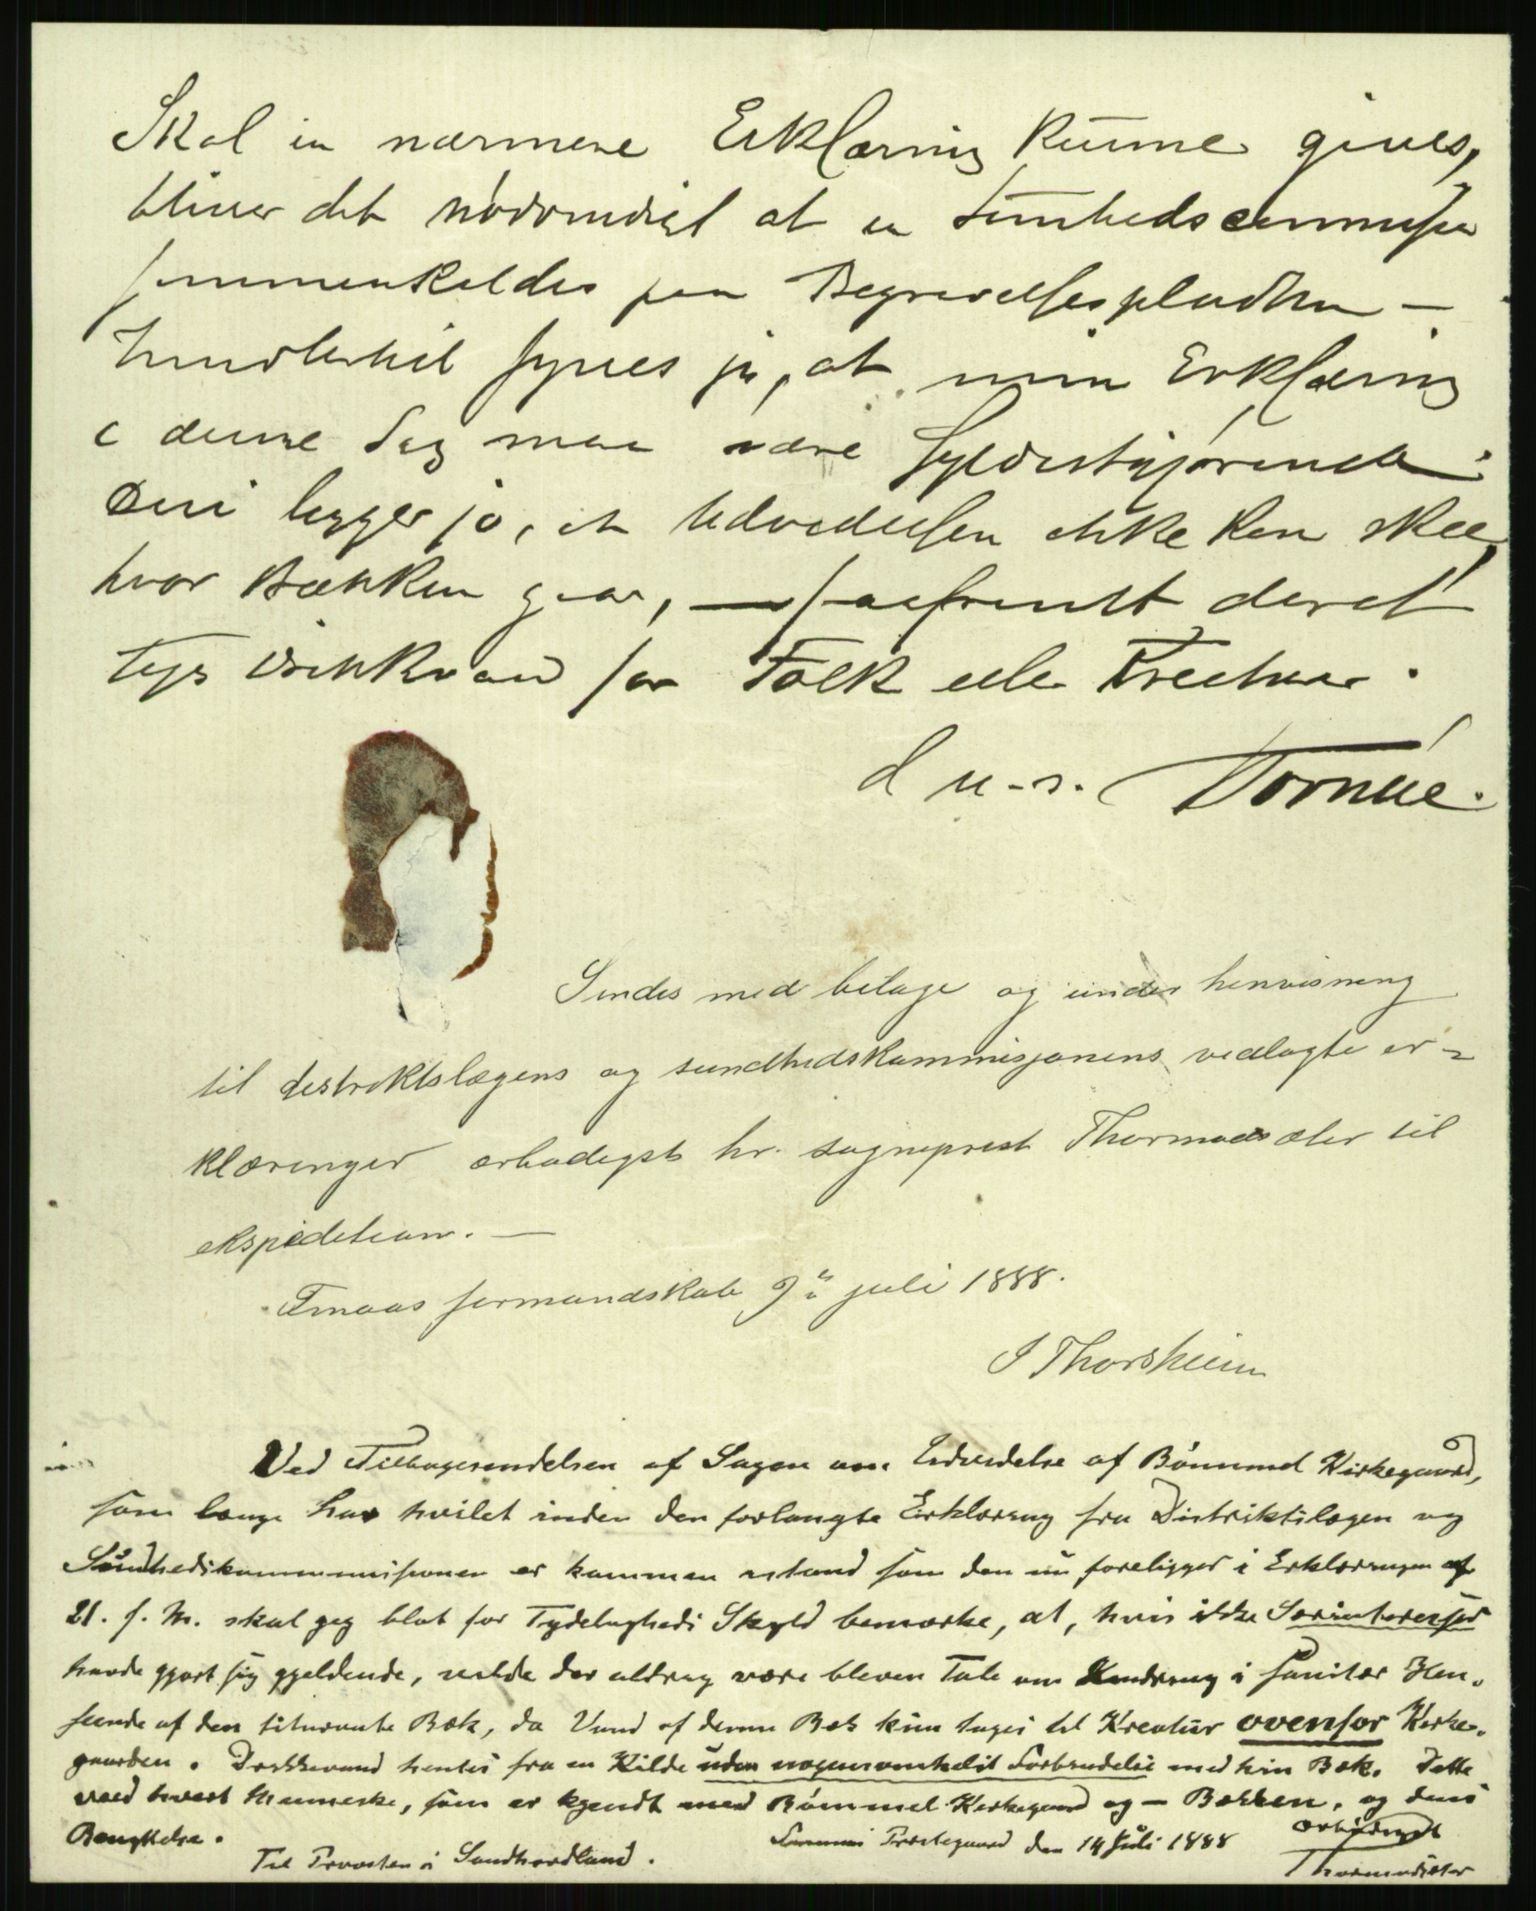 Skal en nærmere Erklæring kunne gives,
bliver det nødvendigt at en Sundhedscommission
sammenkaldes paa Begravelsespladsen —
Imidlertid synes jeg, at min Erklæring
i denne Sag maa være fyldestgjørende.
Deri ligger jo, at Udvidelsen ikke kan skee,
hvor Bækken gaar, saafremt deraf
tages Drikkevand for Folk eller Creature.
d u-s. Tornüe.
Sendes med bilage og under henvisning
til distriktslægens og sundhedskommissjonens vedlagte er-
klæringer ærbødigst hr. sogneprest Thormodsæter til
ekspedition. —
Finaas formandskab 9de juli 1888.
I Thorsheim
Ved Tilbagesendelsen af Sagen om Udvidelse af Bömmel Kirkegaard,
som længe har hvilet inden den forlangte Erklæring fra Distriktslægen og
Sundhedskommmissionen er kommen istand som den nu foreligger i Erklæringen af
21. f. M. skal jeg blot for Tydeligheds Skyld bemærke, at, hvis ikke Særinteresser
havde gjort sig gjeldende, vilde der aldrig være bleven Tale om Hindring i sanitær Hen-
seende af den titnævnte Bæk, da Vand af denne Bæk kun tages til Kreatur ovenfor Kirke-
gaarden. Drikkevand hentes fra en Kilde uden nogensomhelst Forbindelse med hin Bæk. Dette
veed hvert Menneske, som er kjendt med Bömmel Kirkegaard og — Bækken, og dens
Benyttelse.
Præstegaard den 14 Juli 1888 ærbödigst
Til Provsten i Søndhordland.
Thormodsæter